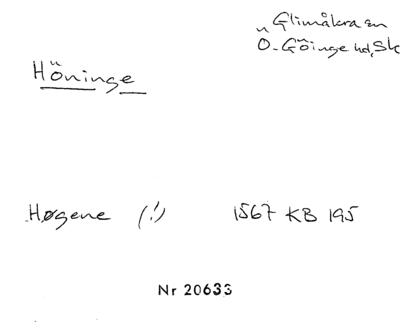 Glimåkra sn
Ö. Göinge hd, Sk
Höninge
Høgene (!) 1567 KB 195
Nr 20633